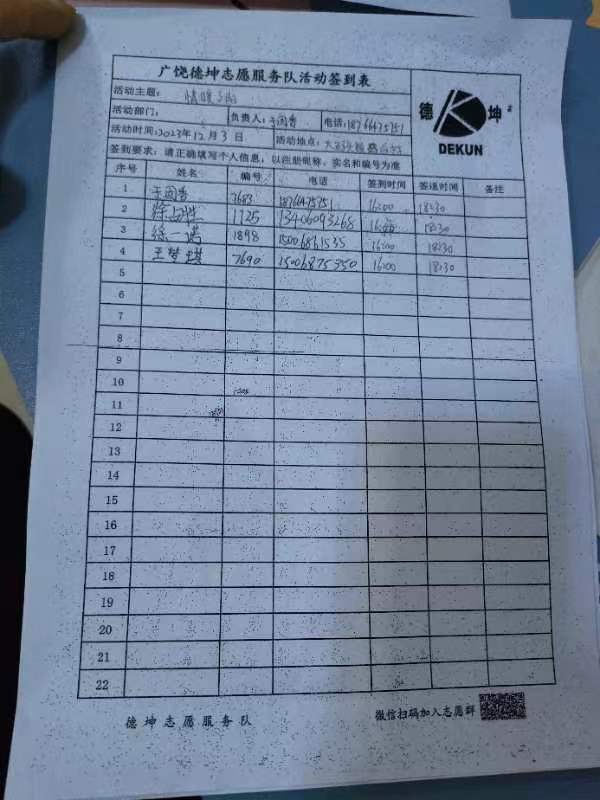 广饶德坤志愿服务队活动签到表
德 坤
DEKUN
活动主题:
活动部门: 负责人:于闵香 电话:18766475151
活动时间:2023年12月3日 活动地点:
签到要求:请正确填写个人信息,以注册昵称、实名和编号为准
序号 姓名 编号 电话 签到时间 签退时间 备注
1 于闵香 7683 18766475751 16:00 18:30
2 1125 13406093268 16:00 18:30
3 徐一诺 1898 15006861535 16:00 18:30
4 王梦琪 7690 15006875950 16:00 18:30
5
6
7
8
9
10
11
12
13
14
15
16
17
18
19
20
21
22
德坤志愿服务队 微信扫码加入志愿群